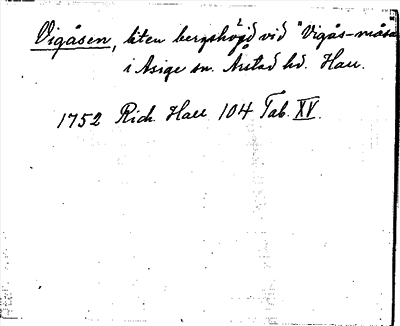 Vigåsen, liten bergshöjd vid "Vigås-måsa
i Asige sn. Årstad hd. Hall.
1752 Rich. Hall 104 Tab. XV.